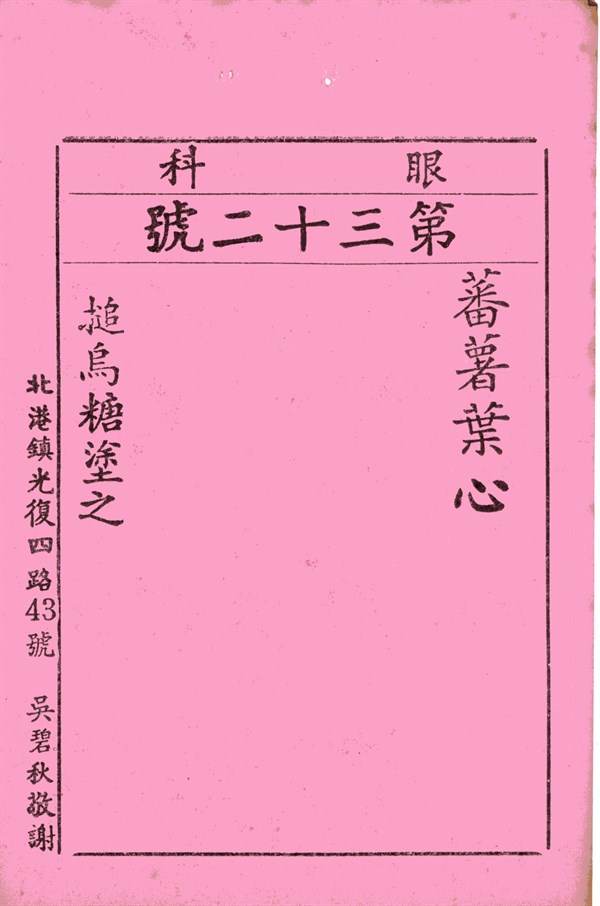 眼科
第三十二號
蕃薯葉心
搥烏糖塗之
北港鎮光復四路43號 吳碧秋敬謝